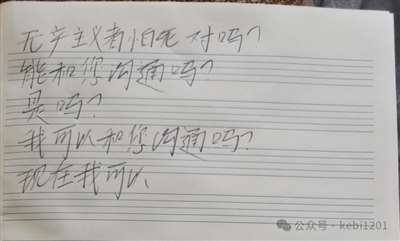 无产主义者怕死对吗?
能和您沟通吗?
是吗?
我可以和您沟通吗?
现在我可以
公众号·kebi1201